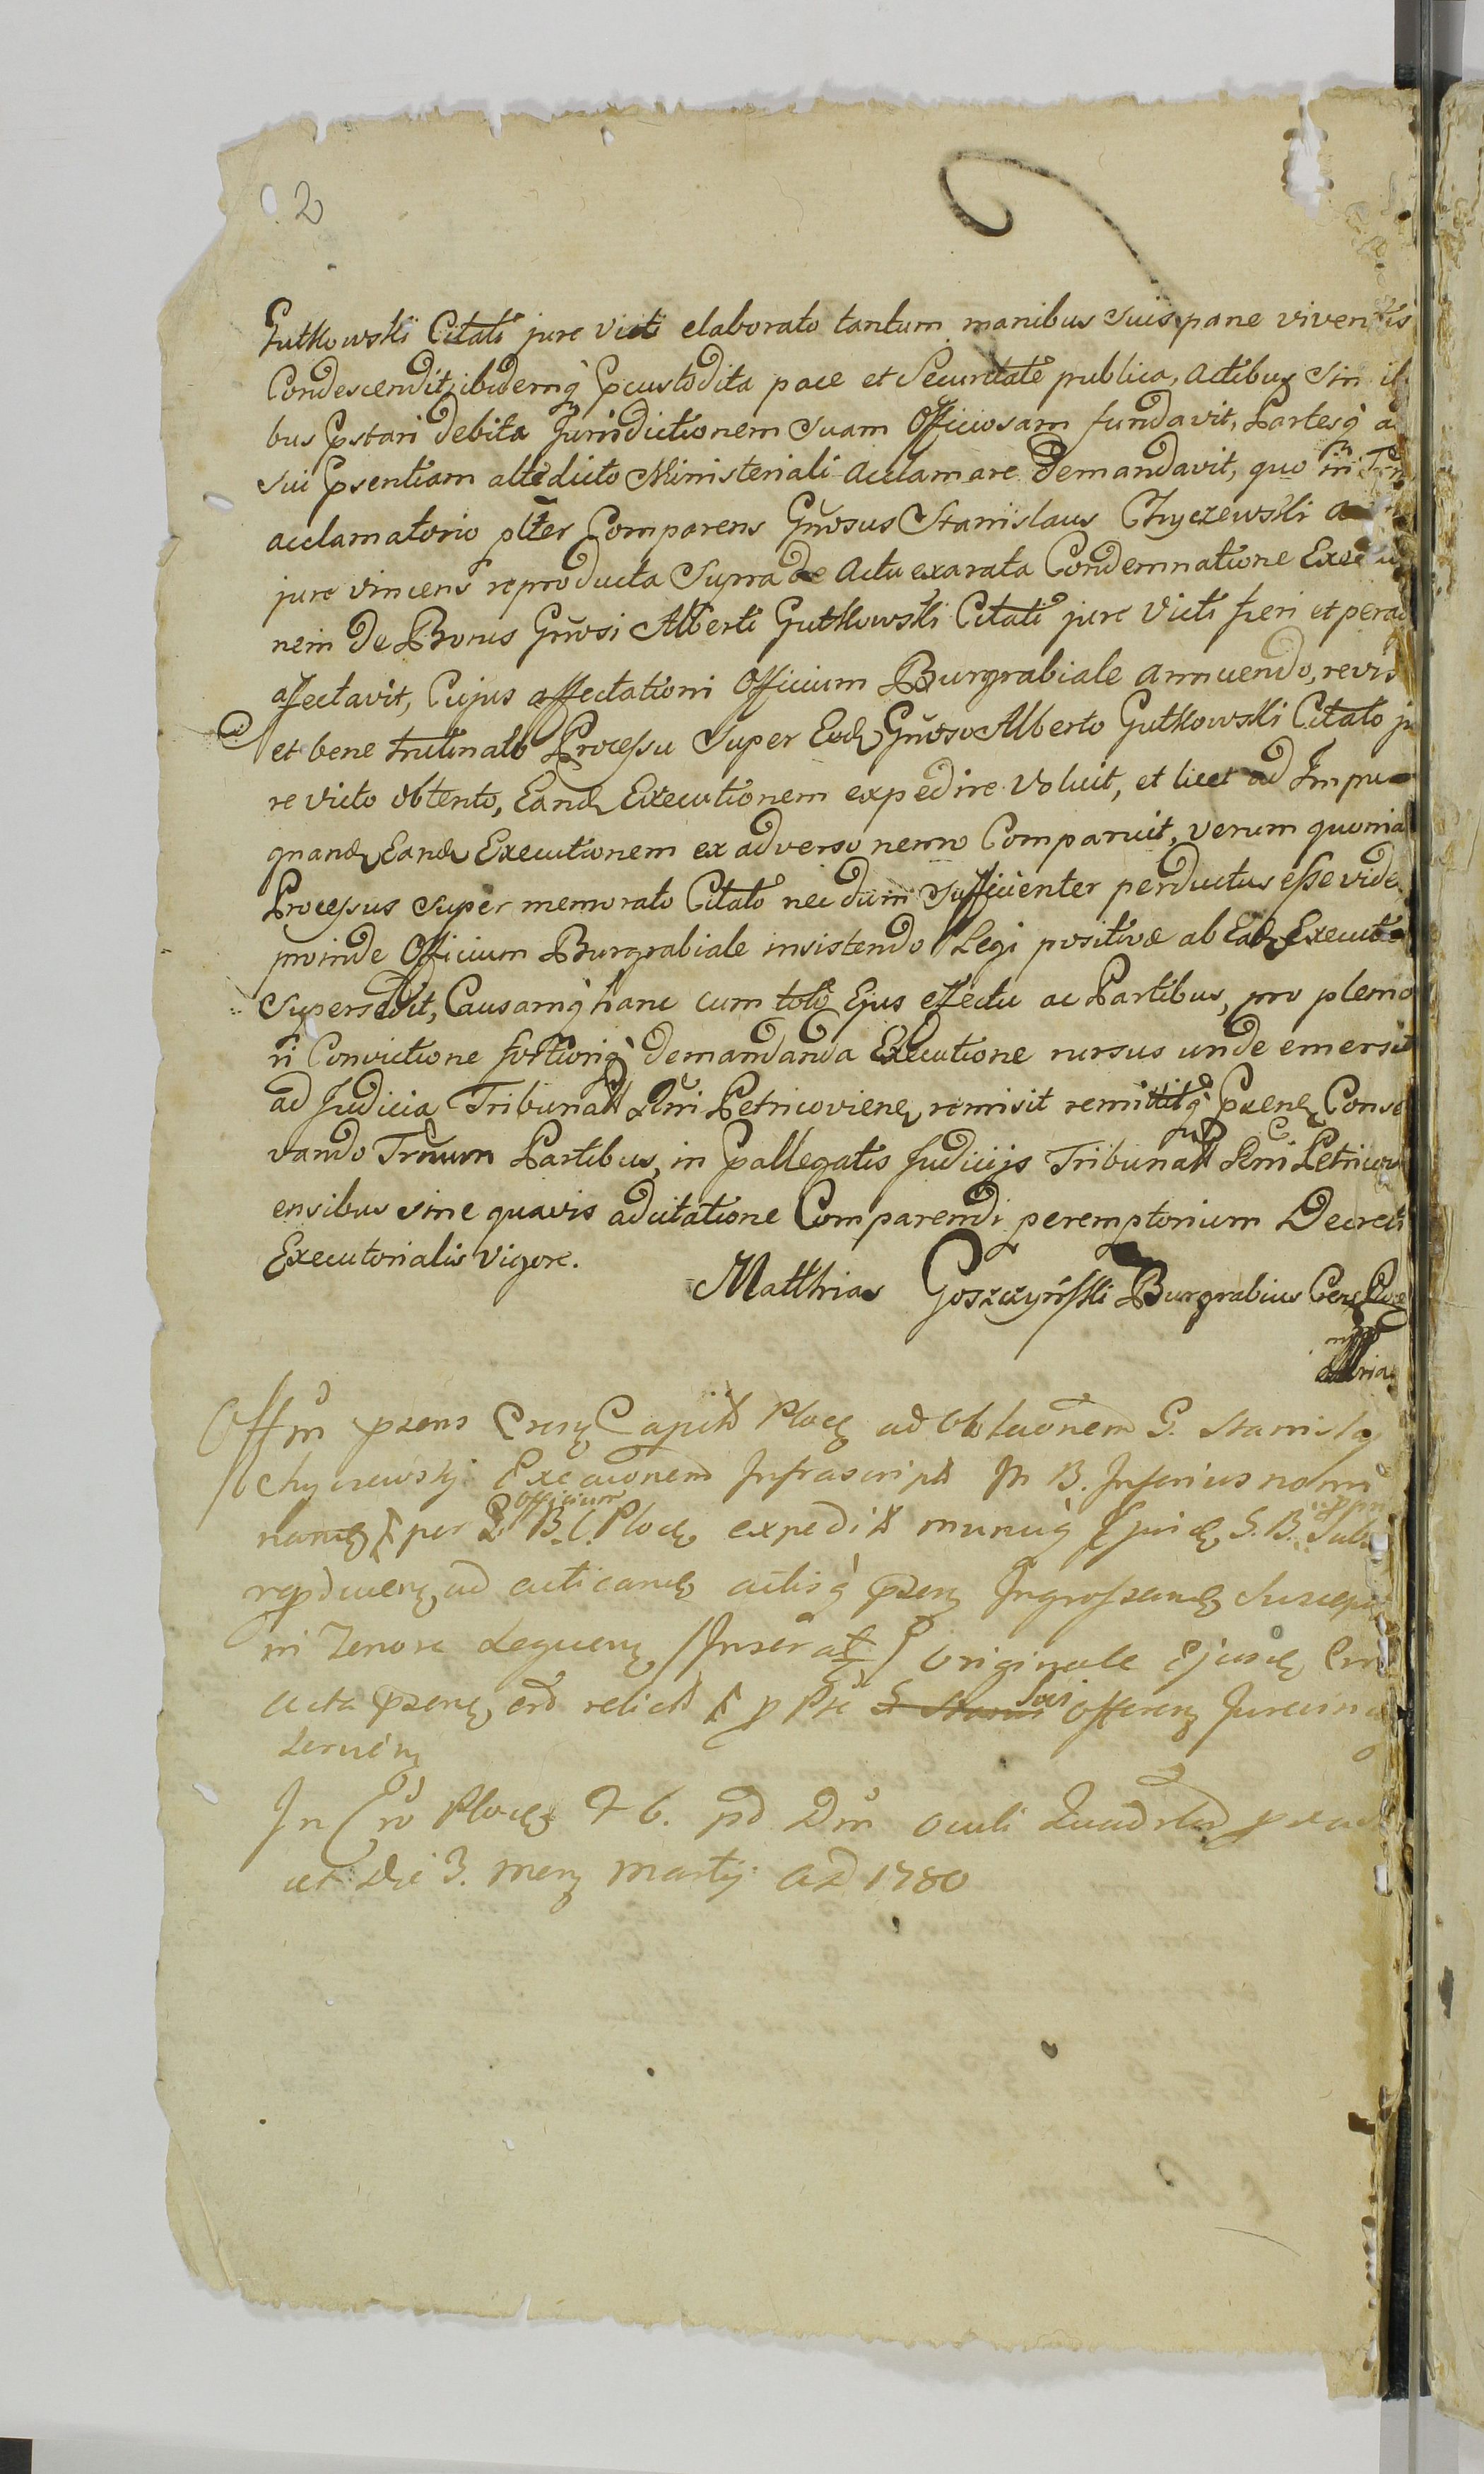 2
Gutkowski Citati jure victi elaborato tantum manibus suis pane viventis
Condescendit, ibidemq́ pcustodita pace et Securitate publica, actibus simili
bus pstari debita Jurisdictionem suam Officiosam fundavit, Partesq́ ad
sui psentiam altedicto Ministeriali acclamare demandavit, quo in Trno
acclamatorio plter Comparens Gnrosus Stanislaus Chyczewski Actor
jure vincens reproducta supra de Actu exarata Condemnatione Executio
nem de Bonis Gnrosi Alberti Gutkowski Citati jure Victi fieri et peragi
affectavit, Cujus affectationi Officium Burgrabiale annuendo, reviso
et bene trutinato Processu super Eod Gnroso Alberto Gutkowski Citato ju
re victo obtento, Eand Executionem expedire voluit, et licet ad Impu
gnand Eand Executionem ex adverso nemo Comparuit, verum quoniam
Processus super memorato Citato nec dum sufficienter perductus esse vide
proinde Officium Burgrabiale insistendo Legi positivæ ab Ead Executione
supersedit, Causamq́ hanc cum toto Ejus effectu ac Partibus, pro plenio
ri Convictione fortiorique demandanda Executione rursus unde emersit
ad Judicia Tribunall Rni Petricovien, remisit remittitq́ pzent, Conser
vando Trnum Partibus, in pallegatis Judiciis Tribunall Rni Petricovi
ensibus sine quavis adcitatione Comparendi peremptorium Decreti
Executorialis vigore.
Matthias Goszczyński Burgrabius
Offm psens Cren, Capitl Plocen ad oblaonem G. Stanislai
Chyczewski Execuonem Infrascript in B. Inferius nomi
nand per Officium B. C. Plocen expedit
ad acticand actisq́ pzen Ingrossand suscepit
in Tenore sequen, Inserat Originale Ejusd
acta pzen, relict offeren
In Cro Plocen F. 6. pd Dm Oculi Quadrlem
et Die 3. Mens Martij AD 1780